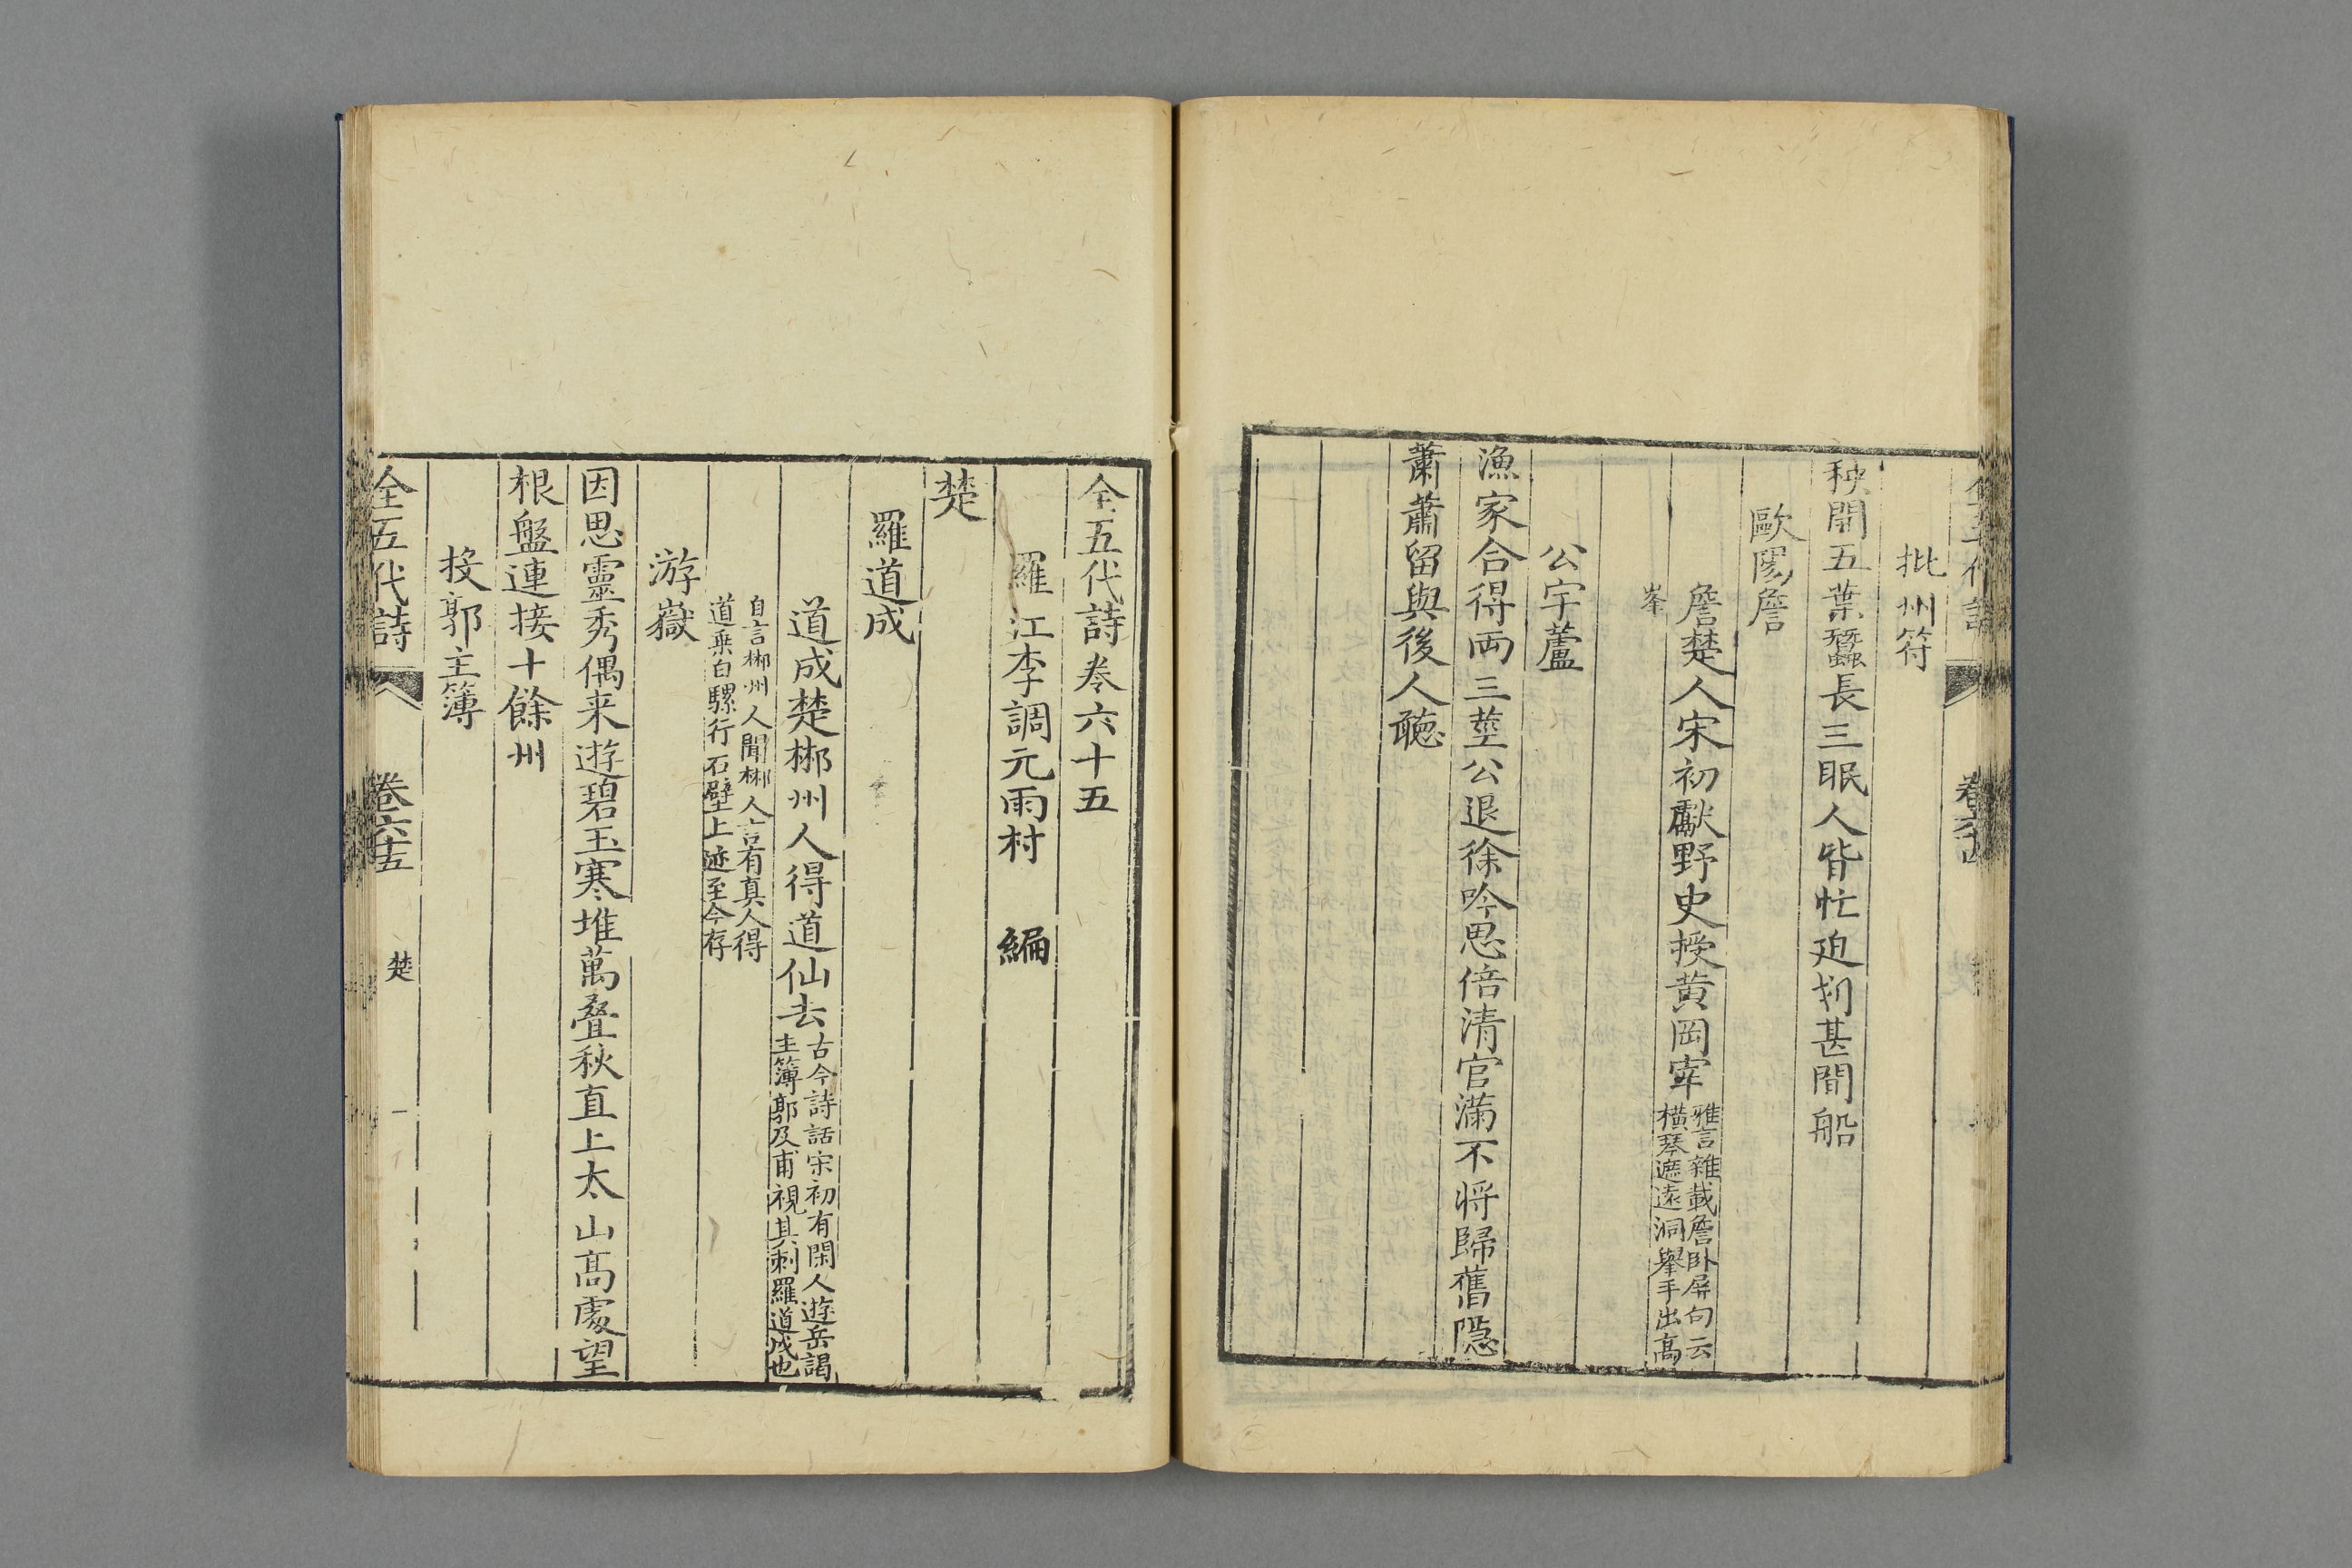 批州符
秧開五葉蠶長三眠人皆忙迫划甚閒船
歐陽詹
詹楚人宋初獻野史授黄岡宰
雅言雜載詹卧屏句云
橫琴遮遠洞舉手出高
峯
公宇蘆
漁家合得両三莖公退徐吟思倍清官滿不将歸舊隱
蕭蕭留與後人聴
全五代詩卷六十五
羅江李調元雨村 編
楚
羅道成
道成楚郴州人得道仙去
古今詩話宋初有閑人遊岳謁
主簿郭及甫視其刺羅道成也
自言郴州人聞郴人言有真人得
道乗白騾行石壁上迹至今存
游嶽
因思靈秀偶来遊碧玉寒堆萬叠秋直上太山高處望
根盤連接十餘州
投郭主簿
全五代詩 卷六十五 楚 一